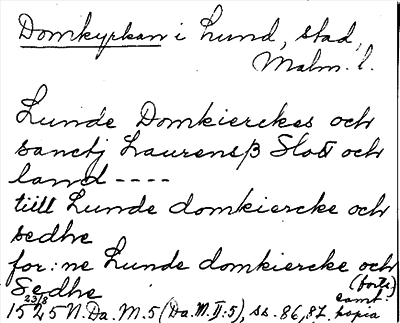 Domkyrkan i Lund, stad,
Malm. l.
Lunde Domkierckes och
sanctj Laurensβ Slots och
land ----
tiill Lunde domkiercke och
sedhe
for:ne Lunde domkiercke och
Sedhe (forts.)
1525 23/8 N. Da. M. 5 (Da. M. II:5), ss. 86, 87. samt. kopia